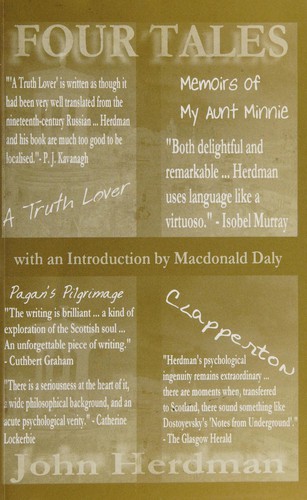 FOUR TALES
"'A Truth Lover' is written as though it
had been very well translated from the
nineteenth-century Russian ... Herdman
and his book are much too good to be
localised." - P. J. Kavanagh
A Truth Lover
Memoirs of
My Aunt Minnie
"Both delightful and
remarkable ... Herdman
uses language like a
virtuoso." - Isobel Murray
with an Introduction by Macdonald Daly
Pagan's Pilgrimage
"The writing is brilliant ... a kind
of exploration of the Scottish soul ...
An unforgettable piece of writing."
- Cuthbert Graham
"There is a seriousness at the heart of it,
a wide philosophical background, and an
acute psychological verity." - Catherine
Lockerbie
Clapperton
"Herdman's psychological
ingenuity remains extraordinary ...
there are moments when, transferred
to Scotland, there sound something like
Dostoyevsky's 'Notes from Underground'."
- The Glasgow Herald
John Herdman